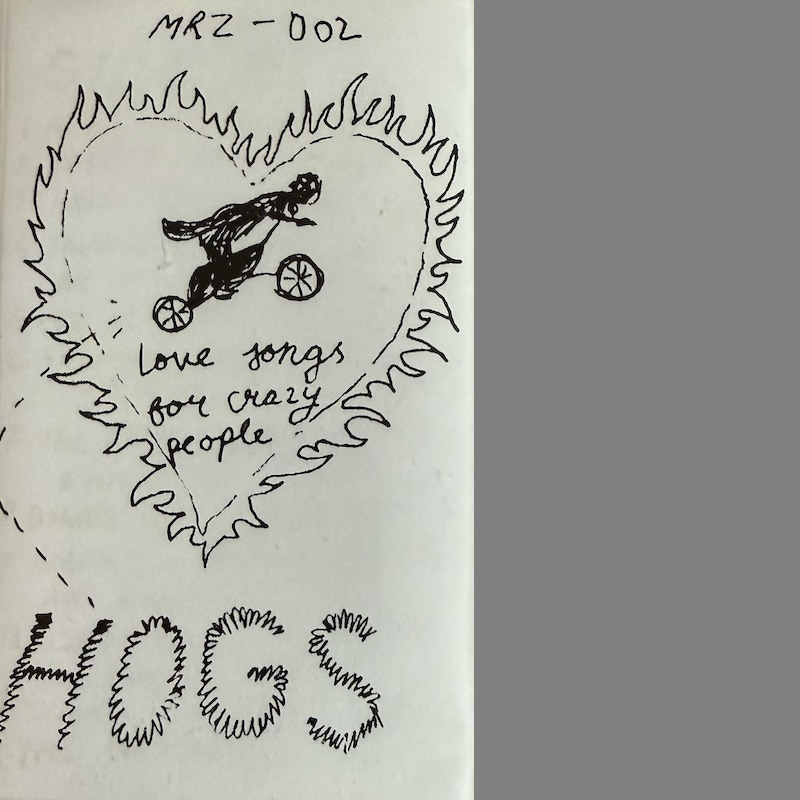 MRZ - 002
love songs
for crazy
people
HOGS